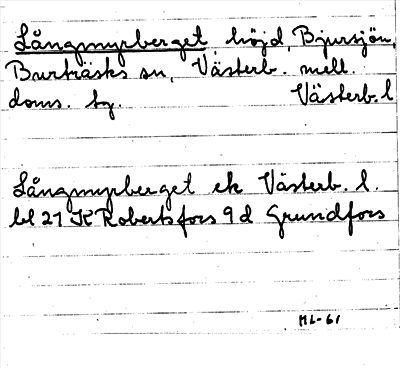 Långmyrberget, höjd, Bjursjön,
Burträsks sn, Västerb. mell.
doms. tg. Västerb. l
Långmyrberget ek Västerb. l.
bl 21 K Robertsfors 9 d Grundfors
ML-61